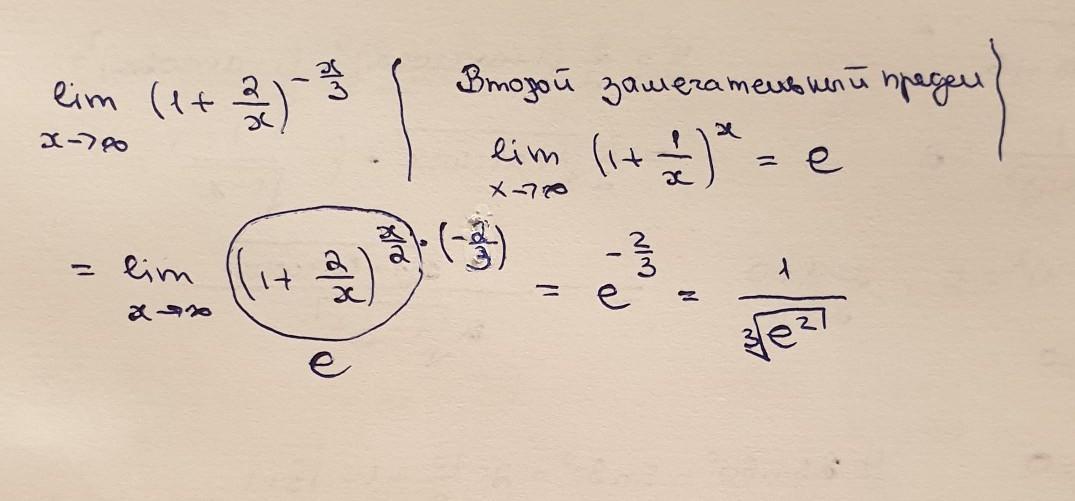 lim x→∞ (1 + 2/x)^(-x/3)
Второй замечательный предел
lim x→∞ (1 + 1/x)^x = e
= lim x→∞ (1 + 2/x)^(x/2 · (-2/3)) = e^(-2/3) = 1/∛(e^2)
e